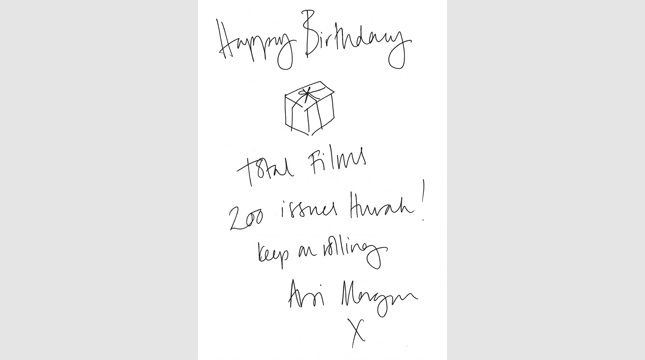 Happy Birthday
Total Films
200 issues Hurrah!
Keep on rolling
Morgan
X